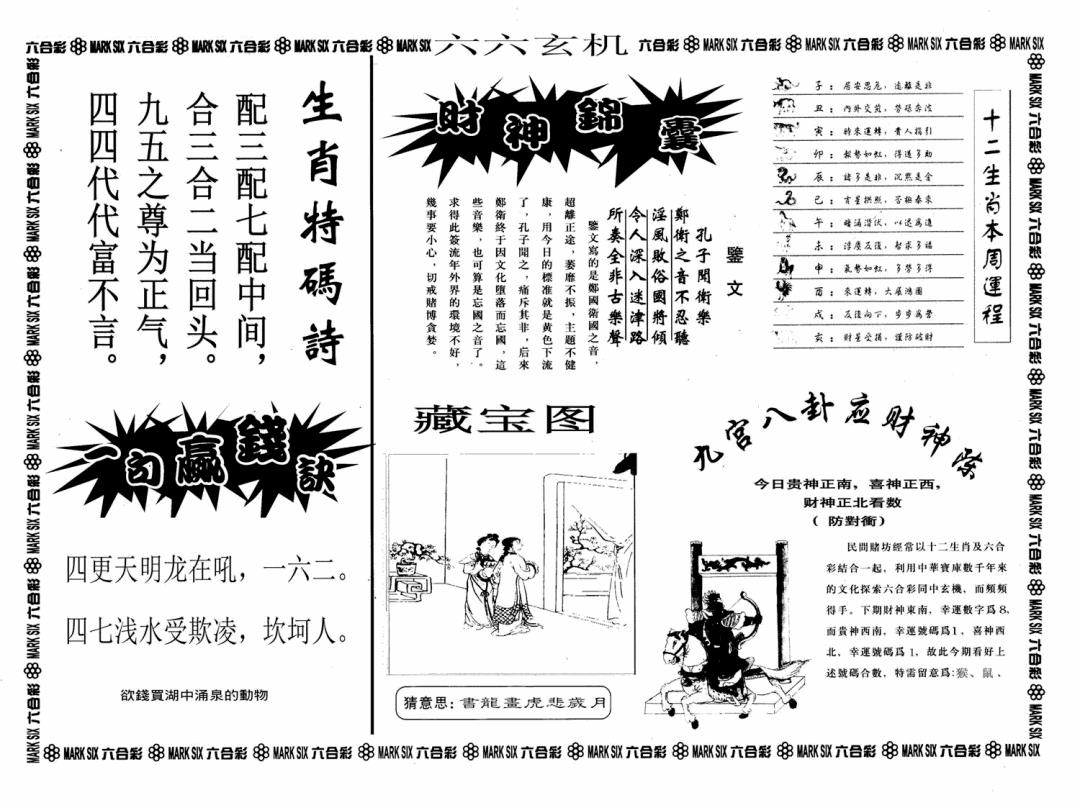 六六玄机
六合彩 MARK SIX 六合彩 MARK SIX 六合彩 MARK SIX 六合彩 MARK SIX
六合彩 MARK SIX 六合彩 MARK SIX 六合彩 MARK SIX 六合彩 MARK SIX
生肖特碼詩
配三配七配中间，
合三合二当回头。
九五之尊为正气，
四四代代富不言。
一句贏錢訣
四更天明龙在吼，一六二。
四七浅水受欺凌，坎坷人。
欲錢買湖中涌泉的動物
財神錦囊
鑒文
孔子聞衛樂
鄭衛之音不忍聽
淫風敗俗國將傾
令人深入迷津路
所奏全非古樂聲
鑒文寫的是鄭國衛國之音，
超離正途，萎靡不振，主題不健
康，用今日的標准就是黄色下流
了，孔子聞之，痛斥其非，后來
鄭衛終于因文化墮落而忘國，這
些音樂，也可算是忘國之音了。
求得此簽流年外界的環境不好，
幾事要小心，切戒賭博貪婪。
十二生肖本周運程
子：居安思危，遠離是非
丑：內外交煎，勞碌奔波
寅：時來運轉，貴人指引
卯：氣勢如虹，得道多助
辰：諸多是非，沉默是金
巳：吉星拱照，苦極泰來
午：暗涌潛伏，以退爲進
未：浮廢反復，智求多福
申：氣勢如虹，多勞多得
酉：來運轉，大展鴻圖
戌：反復向下，步步爲營
亥：財星受損，謹防破財
藏宝图
猜意思：書龍畫虎悲歲月
九宫八卦应财神
今日贵神正南，喜神正西，
财神正北看数
（防對衝）
民間賭坊經常以十二生肖及六合
彩結合一起，利用中華寶庫數千年來
的文化探索六合彩同中玄機，而頻頻
得手。下期財神東南，幸運數字爲8，
而貴神西南，幸運號碼爲1，喜神西
北，幸運號碼爲1，故此今期看好上
述號碼合數，特需留意爲：猴、鼠、
MARK SIX 六合彩 MARK SIX 六合彩 MARK SIX 六合彩 MARK SIX 六合彩 MARK SIX 六合彩 MARK SIX 六合彩 MARK SIX 六合彩 MARK SIX 六合彩 MARK SIX 六合彩 MARK SIX